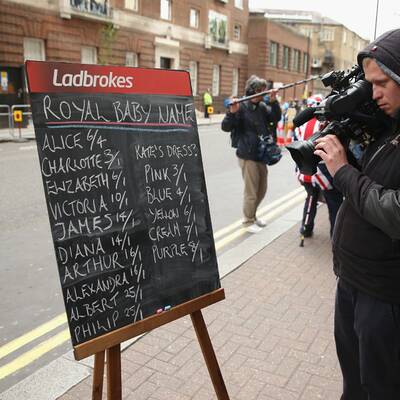 Ladbrokes
ROYAL BABY NAME
ALICE 6/4
CHARLOTTE 3/1
ELIZABETH 6/1
VICTORIA 10/1
JAMES 14/1
DIANA 14/1
ARTHUR 16/1
ALEXANDRA 16/1
ALBERT 25/1
PHILIP 25/1
KATE'S DRESS?
PINK 3/1
BLUE 4/1
YELLOW 6/1
CREAM 7/1
PURPLE 8/1